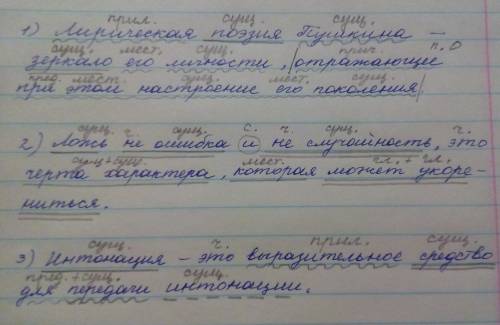 прил. сущ. сущ.
1) Лирическая поэзия Пушкина –
сущ. мест. сущ. прич. п.о
зеркало его личности, отражающее
пред. мест. сущ. мест. сущ.
при этом настроение его поколения
сущ. ч. сущ. с. ч. сущ. ч.
2) Ложь не ошибка и не случайность, это
сущ+сущ. мест. гл. + гл.
черта характера, которая может укоре-
ниться.
сущ. ч. прил. сущ.
3) Интонация – это выразительное средство
пред. + сущ. сущ.
для передачи интонации.